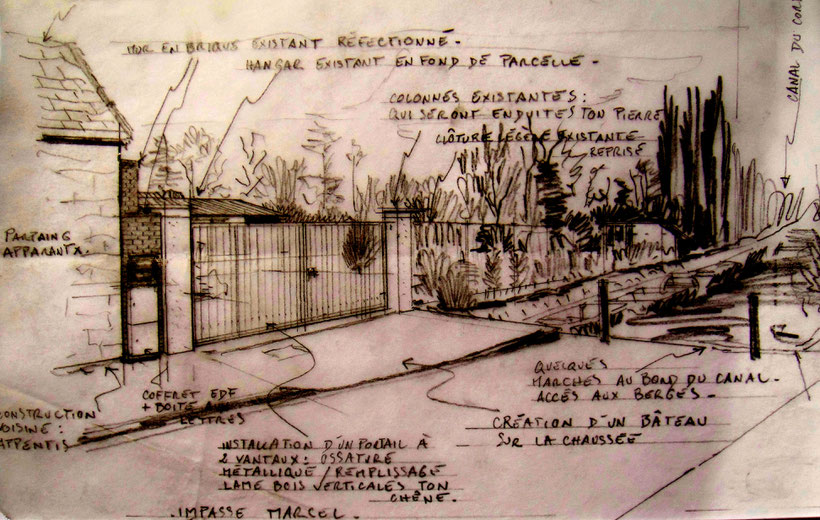 MUR EN BRIQUS EXISTANT RÉFECTIONNÉ.
HANGAR EXISTANT EN FOND DE PARCELLE.
COLONNES EXISTANTES:
QUI SERONT ENDUITES TON PIERRE
CLÔTURE LÉGÈRE EXISTANTE
REPRISE
CANAL DU
PARPAING
APPARANTX.
CONSTRUCTION
VOISINE:
APPENTIS
COFFRET EDF
+ BOITE AUX
LETTRES
INSTALLATION D'UN PORTAIL À
2 VANTAUX: OSSATURE
MÉTALLIQUE / REMPLISSAGE
LAME BOIS VERTICALES TON
CHÊNE.
QUELQUES
MARCHES AU BOND DU CANAL.
ACCÈS AUX BERGES.
CRÉATION D'UN BÂTEAU
SUR LA CHAUSSÉE
.IMPASSE MARCEL.